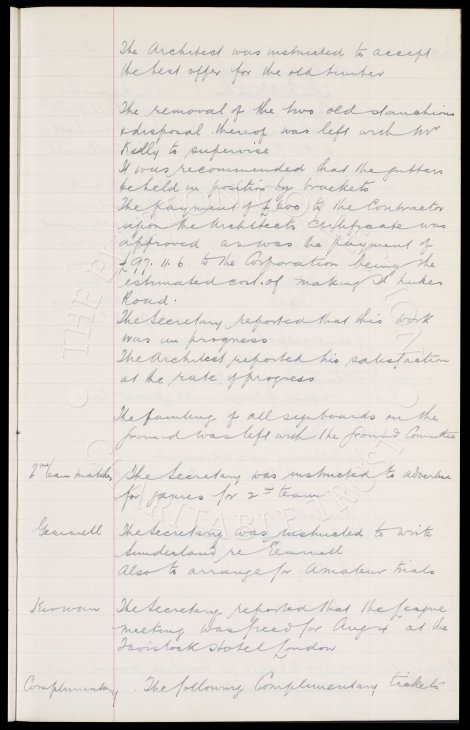 The Architect was instructed to accept
the best offer for the old timber
The removal of the two old stanchions
& disposal thereof was left with Mr
Kelly to supervise
It was recommended that the gutters
be held in position by brackets
The payment of £600 to the Contractor
upon the Architects certificate was
approved as was the payment of
£97.11.6 to the Corporation being the
estimated cost of making St Lukes
Road.
The Secretary reported that this work
was in progress
The Architect reported his satisfaction
at the rate of progress
The painting of all signboards on the
ground was left with the Ground Committee
2nd team matches The Secretary was instructed to advertise
for games for 2nd team
Gemmell The Secretary was instructed to write
Sunderland re Gemmell
Also to arrange for Amateur trials
Kirwan The Secretary reported that the League
meeting was fixed for Aug 4 at the
Tavistock Hotel London
Complimentary The following Complimentary tickets
THE EVERTON
CHARITABLE TRUST